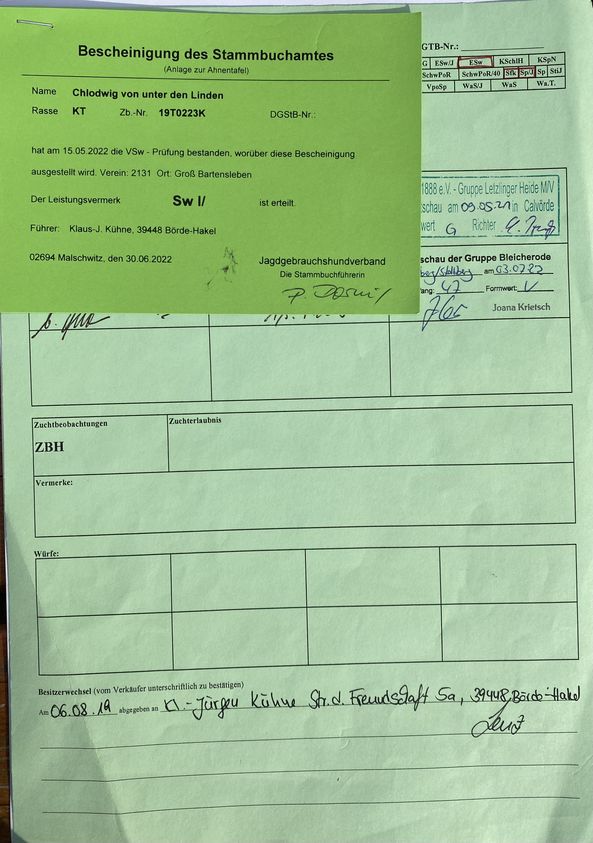 Bescheinigung des Stammbuchamtes
(Anlage zur Ahnentafel)
Name Chlodwig von unter den Linden
Rasse KT Zb.-Nr. 19T0223K DGStB-Nr.:
hat am 15.05.2022 die VSw - Prüfung bestanden, worüber diese Bescheinigung
ausgestellt wird. Verein: 2131 Ort: Groß Bartensleben
Der Leistungsvermerk Sw I/ ist erteilt.
Führer: Klaus-J. Kühne, 39448 Börde-Hakel
02694 Malschwitz, den 30.06.2022 Jagdgebrauchshundverband
Die Stammbuchführerin
GTB-Nr.:
G ESw/J ESw KSchlH KSpN
SchwPoR SchwPoR/40 Sfk Sp/J Sp StiJ
VpoSp WaS/J WaS Wa.T.
1888 e.V. - Gruppe Letzlinger Heide M/V
tschau am 09.05.21 in Calvörde
wert G Richter
schau der Gruppe Bleicherode
am 03.07.22
fang: 47 Formwert: V
Joana Krietsch
Zuchtbeobachtungen Zuchterlaubnis
ZBH
Vermerke:
Würfe:
Besitzerwechsel (vom Verkäufer unterschriftlich zu bestätigen)
Am 06.08.19 abgegeben an Kl.-Jürgen Kühne Str.d. Freundschaft 5a, 39448 Börde-Hakel
Lenz